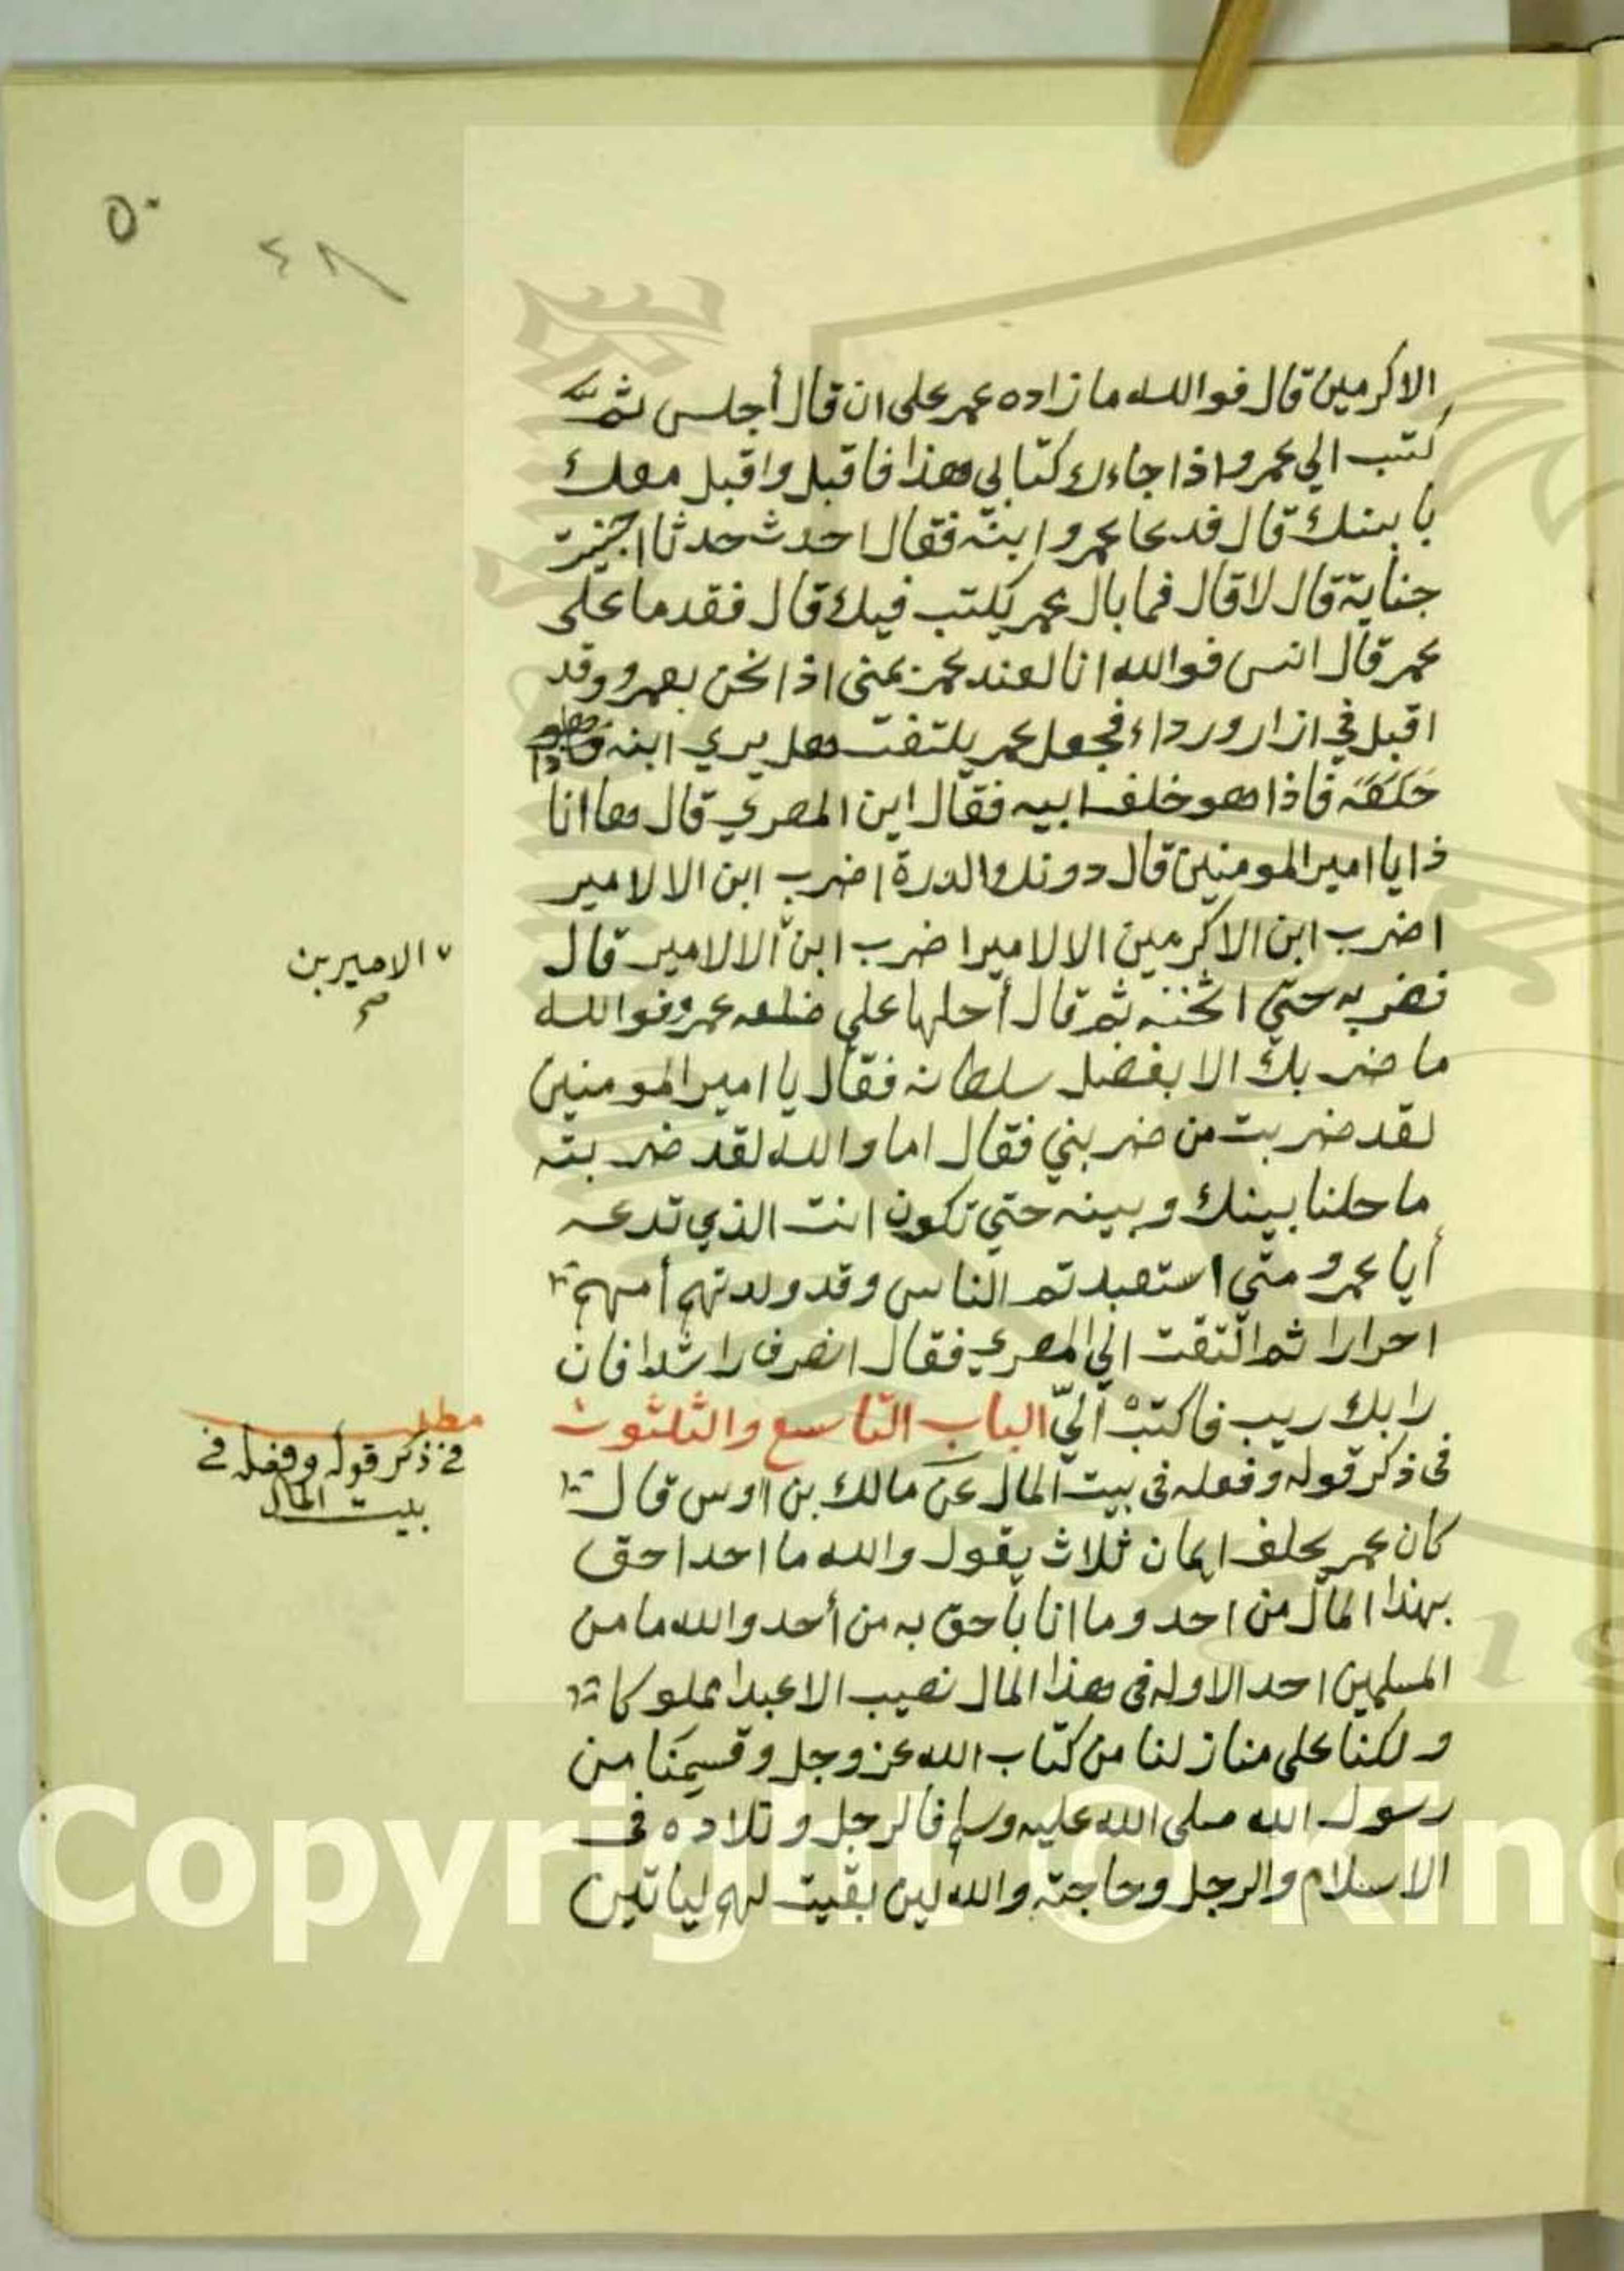 ٥٠
٤٨
الاكرمين قال فوالله ما زاده عمر على ان قال أجلس ثم
كتب الي عمرو اذا جاءك كتابي هذا فاقبل واقبل معك
بابنك قال فدعا عمرو ابنه فقال احدث حدثا اجنيت
جناية قال لا قال فما بال عمر يكتب فيك قال فقدما على
عمر قال انس فوالله انا لعند عمر بمنى اذا نحن بعمرو وقد
اقبل في ازار ورداء فجعل عمر يلتفت هل يري ابنه
خلفه فاذا هو خلف ابيه فقال اين المصري قال ها انا
ذا يا امير المومنين قال دونك الدرة اضرب ابن الالامير
اضرب ابن الاكرمين الالاميرا ضرب ابن الالامير قال
الاميربن
صح
فضربه حتي اثخنه ثم قال أحلها علي ضلعه عمرو فوالله
ما ضربك الا بفضل سلطانه فقال يا امير المومنين
لقد ضربت من ضربني فقال اما والله لقد ضربته
ما حلنا بينك وبينه حتي تكون انت الذي تدعه
أيا عمرو متي استعبدتم الناس وقد ولدتهم أمهم
احرارا ثم التفت الي المصري فقال انصرف راشدا فان
رابك ريب فاكتب اليّ الباب التاسع والثلثون
مطلب
في ذكر قوله وفعله في
بيت المال
فى ذكر قوله وفعله فى بيت المال عن مالك بن اوس قال
كان عمر يحلف ايمان ثلاث يقول والله ما احد احق
بهذا المال من احد وما انا بأحق به من أحد والله ما من
المسلمين احد الا وله فى هذا المال نصيب الا عبدا مملوكا
ولكنا على منازلنا من كتاب الله عز وجل وقسمنا من
رسول الله صلى الله عليه وسلم فالرجل وتلاده فى
الاسلام والرجل وحاجته والله لين بقيت لهم لياتين
Copyright © King